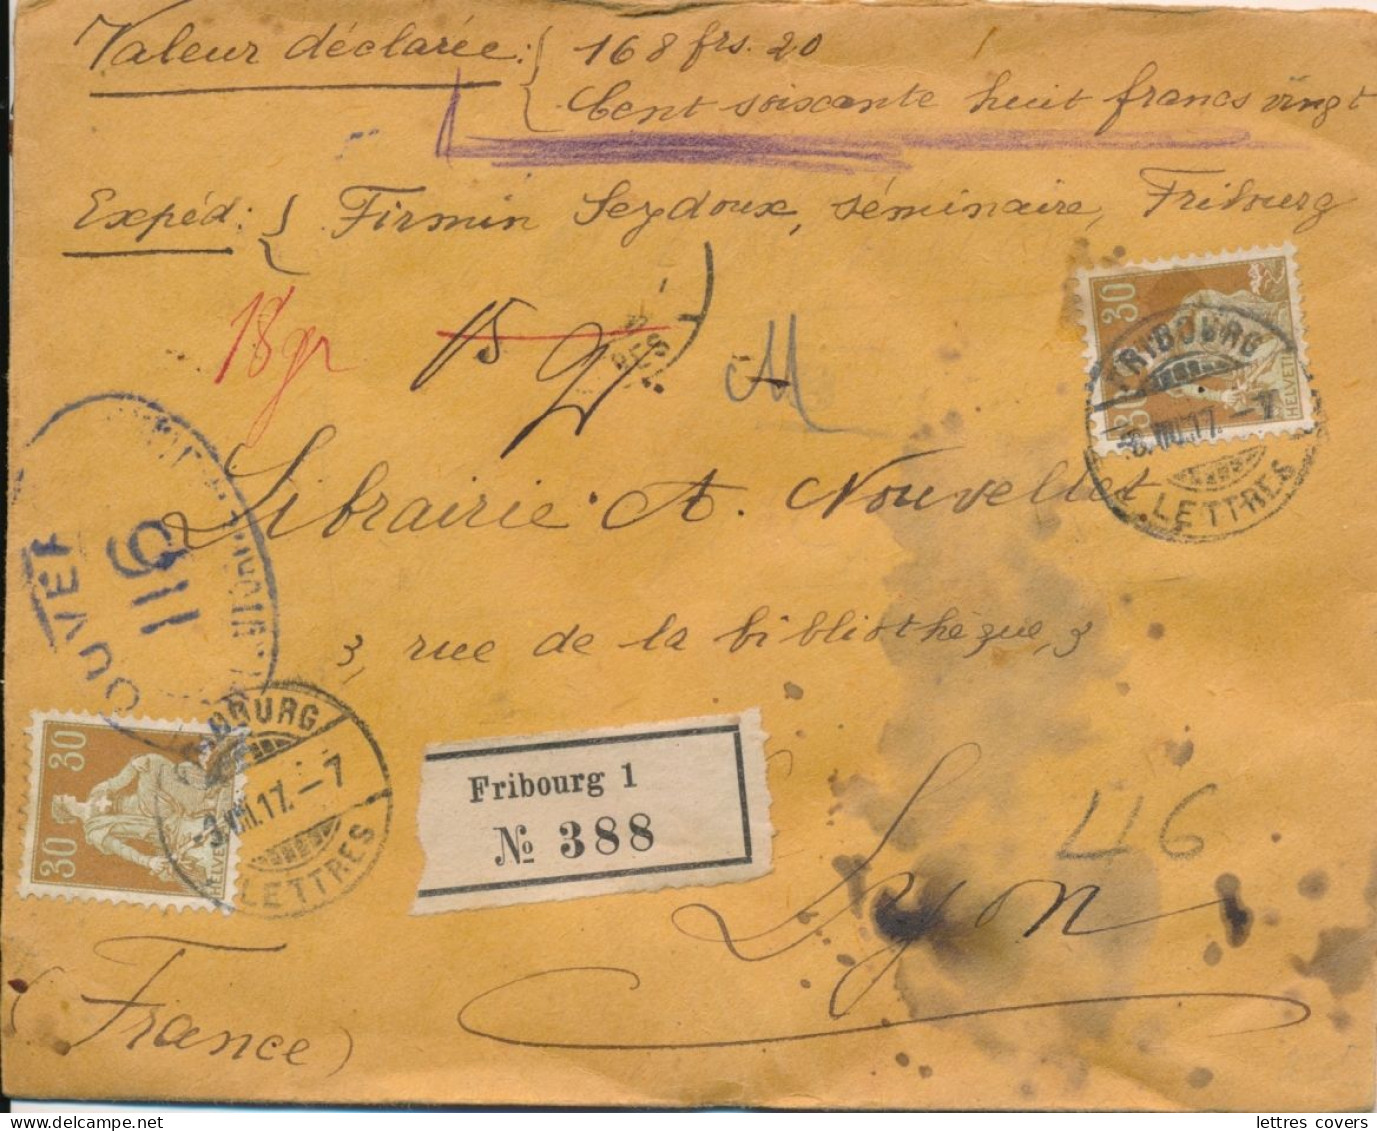 Valeur déclarée : 168 frs. 20
Cent soixante huit francs vingt
Expéd : Firmin Seydoux, séminaire, Fribourg
18 gr 15 gr
M
RES
30
30
HELVETIA
FRIBOURG
-3.VIII.17.-7
LETTRES
Librairie A. Nouvellet
OUVERT
116
3, rue de la bibliothèque, 3
30
30
HELVETIA
FRIBOURG
-3.VIII.17.-7
LETTRES
Fribourg 1
№ 388
46
Lyon
(France)
lettres covers